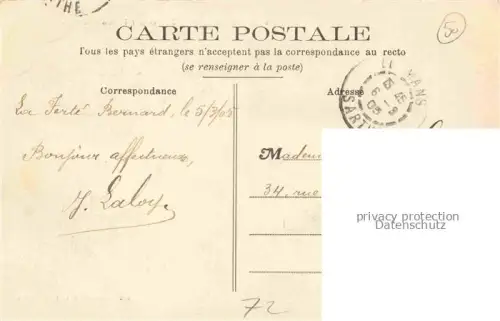 THE
50
CARTE POSTALE
Tous les pays étrangers n'acceptent pas la correspondance au recto
(se renseigner à la poste)
Correspondance
Adresse
MANS
SART
La Ferté Bernard, le 5/3/05
Bonjour affectueux,
J. Laloy.
Madem
34, rue
privacy protection
Datenschutz
72